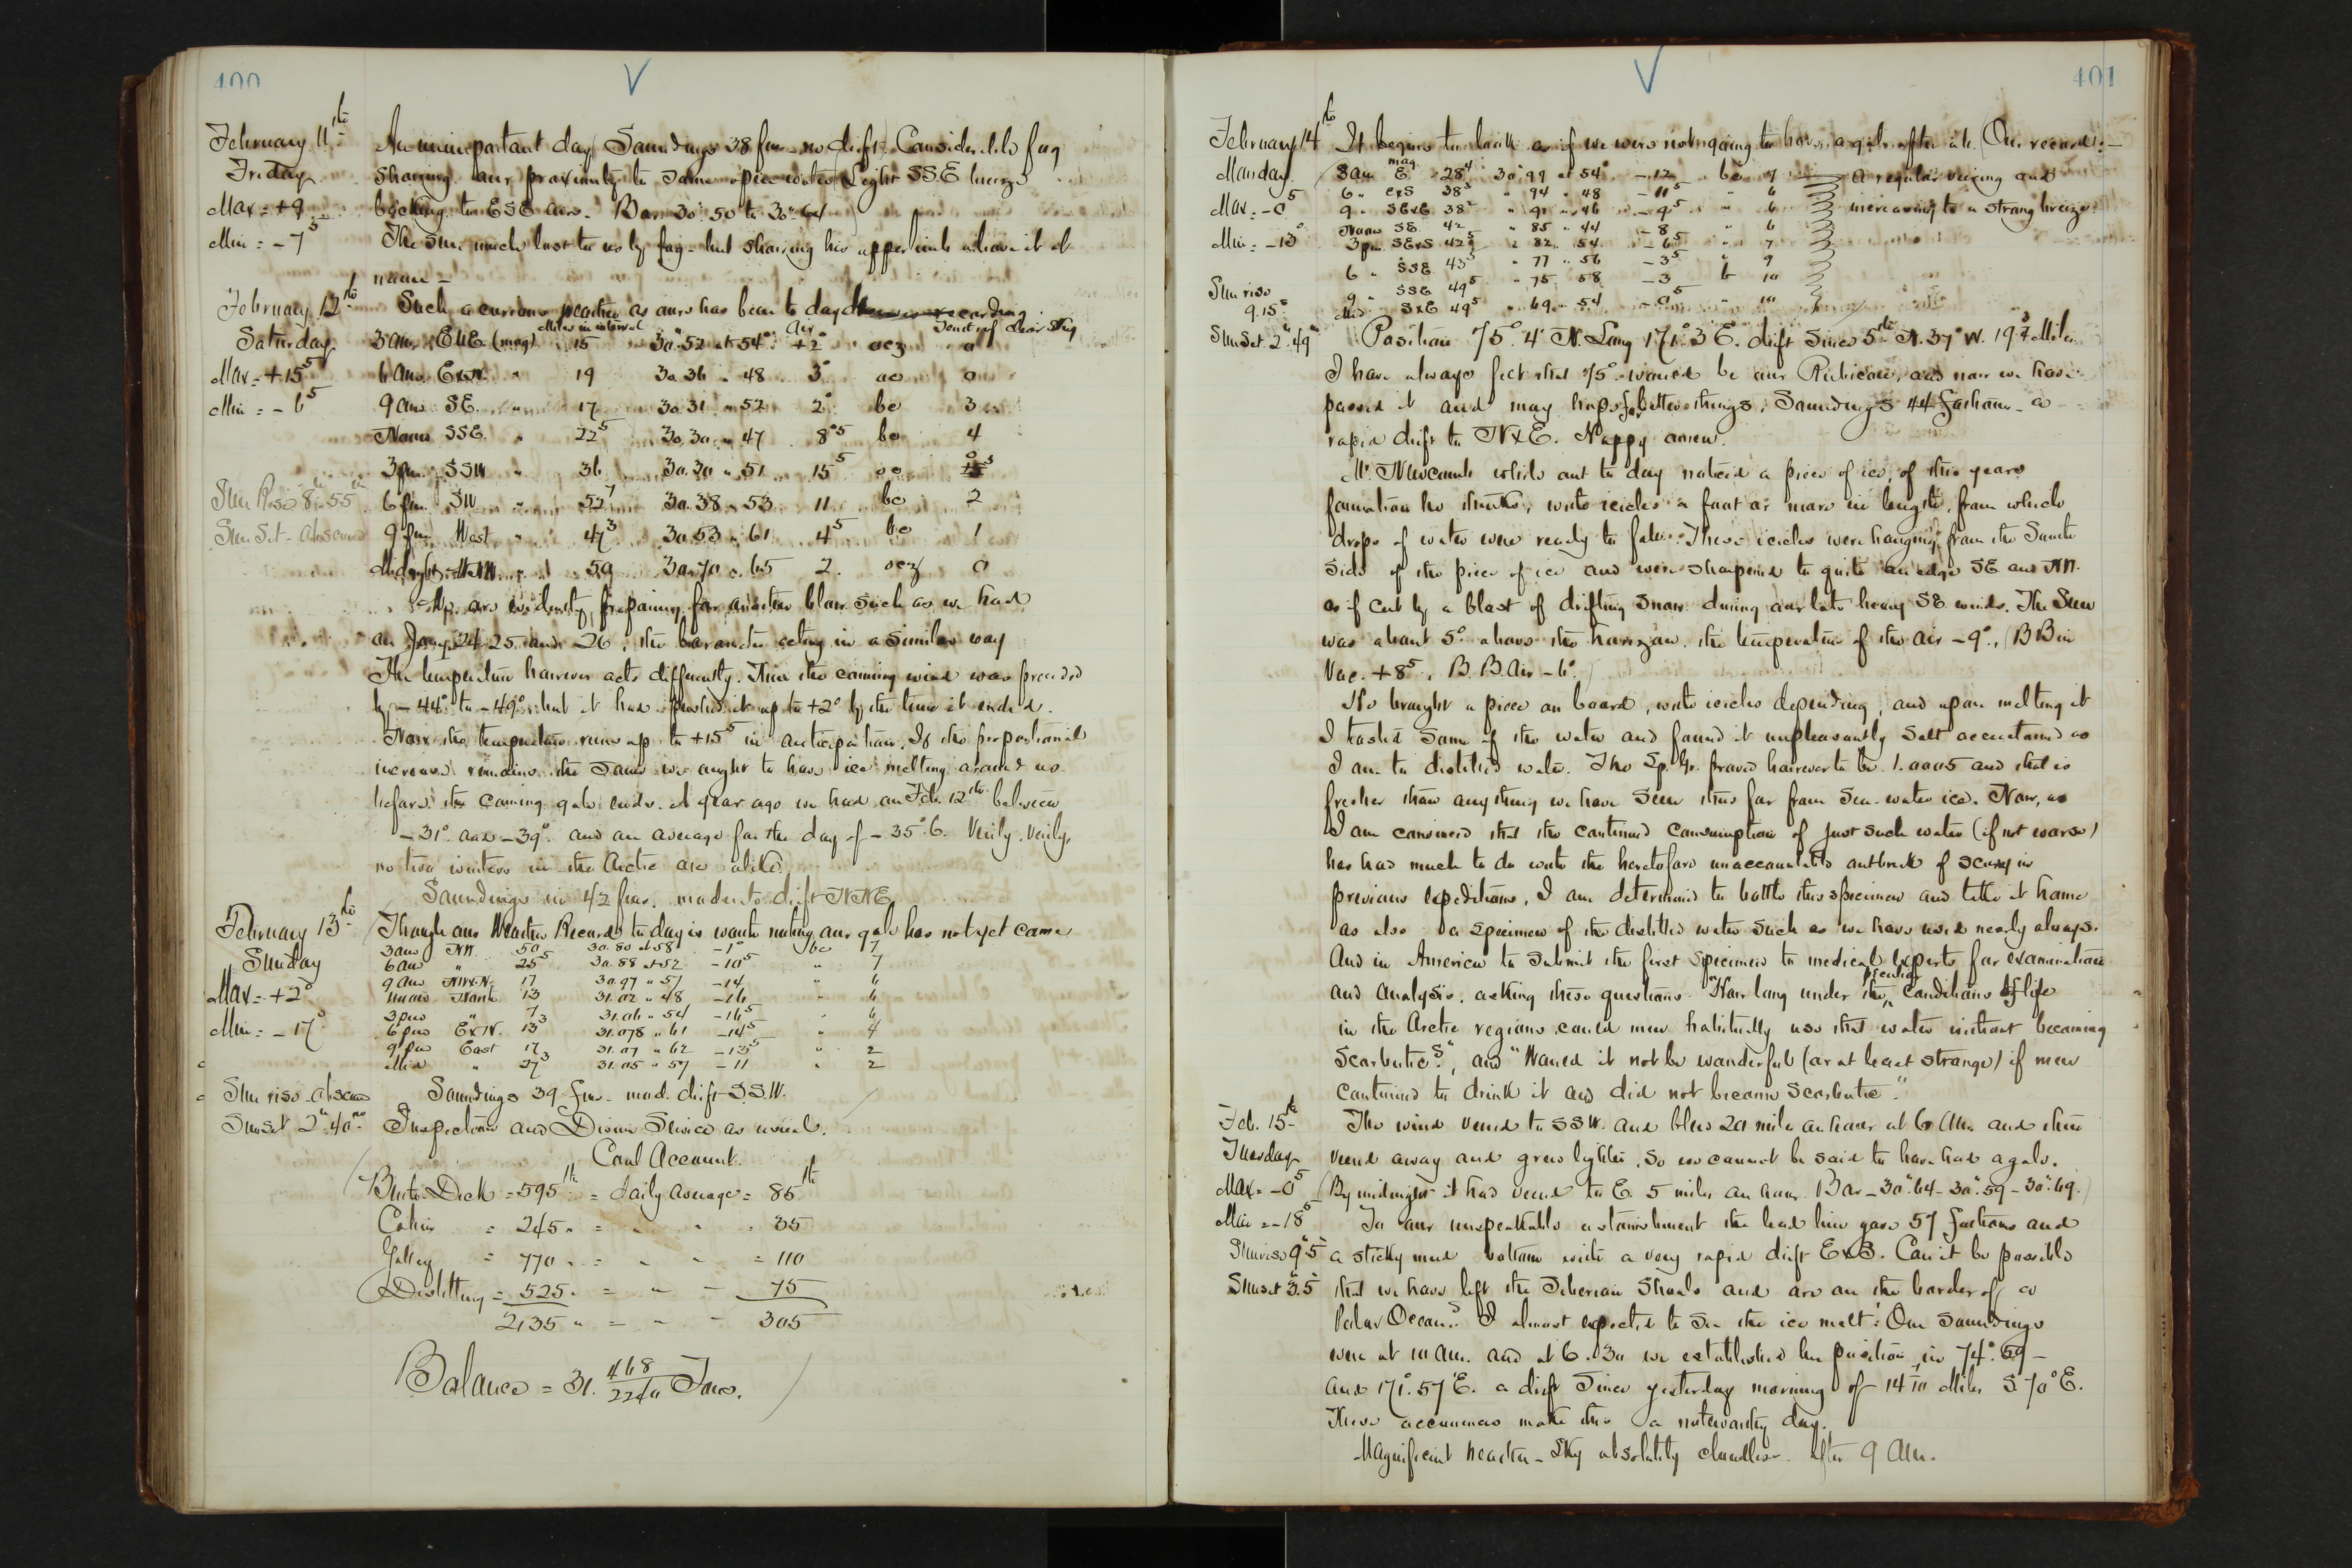 400
February 11th An unimportant day. Soundings 38 fms no drift. Considerable fog
Friday showing our proximity to some open water. Light SSE breeze
Max = +9 backing to ESE
Bar 30".50 to 30".64
Min = -7⁵ The sun much lost to us by fog - but showing his upper limb above it at
noon -
February 12th Such a curious weather as ours has been to day
Miles in interval Air Tenths of clear sky
Saturday 3 am ENE (mag) 15 30".52 at 54° +2° ocz 0
Max = +15⁵ 6 am ExN. " 19 30.36 " 48 3° oc 0
Min = -6⁵ 9 am SE. " 17 30.31 " 52 2° bc 3
Noon SSE. " 22⁵ 30.30 " 47 8°⁵ bc 4
3 pm SSW " 36 30.30 " 51 15⁵ oc
Sun Rise 8h.55m 6 pm SW " 52⁷ 30.38 " 53 11 bc 2
Sun Set - obscured 9 pm West " 47³ 30.53 " 61 4⁵ bc 1
Midnight 50 30.70 " 65 2. ocz 0
We are evidently preparing for another blow such as we had
on Jany 24. 25 and 26, the barometer acting in a similar way
The temperature however acts differently. Then the coming wind was preceded
by -44° to -49° but it had pushed it up to +2° by the time it ended.
Now the temperature runs up to +15⁵ in anticipation. If the proportional
increase remains the same we ought to have ice melting around us
before the coming gale ends. A year ago we had on Feb. 12th between
-31° and -39° and an average for the day of -35°.6. Verily. Verily,
no two winters in the Arctic are alike.
Soundings in 42 fms. moderate drift NNE
February 13th Though our Weather Record to day is worth noting our gale has not yet come
3 am NW. 50 30.80 at 58 -1° bc 7
Sunday 6 am " 25⁵ 30.88 at 52 -10⁵ " 7
9 am NWxN. 17 30.97 " 57 -14 " 6
Max = +2° noon North 13 31.02 " 48 -16 " 6
3 pm " 7³ 31.06 " 54 -16⁵ " 6
Min = -17° 6 pm ExN. 13 31.078 " 61 -14⁵ " 4
9 pm East 17 31.07 " 62 -13⁵ " 2
Mid " 27³ 31.05 " 57 -11 " 2
Sun rise - obscured Soundings 39 fms - mod. drift S.S.W.
Sunset 2h.40m Inspection and Divine Service as usual.
Coal Account.
Berth Deck = 595 lbs = daily average = 85 lbs
Cabin = 245 " = " " = 35
Galley = 770 " = " " = 110
Distilling = 525 " = " - 75
2135 " = " - 305
Balance = 31. 468/2240 Tons.
401
February 14th It begins to look as if we were not going to have a gale after all. Our record: -
Monday. 3 am E mag 28⁴ 30".99 at 54° -12 bc 7 A regular veering and
6 " ExS 38³ " 94 " 48 -11⁵ " 6
Max = -0⁵ 9 " SExE 38² " 91 " 46 -9⁵ " 6 increasing to a strong breeze
Noon SE 42 " 85 " 44 -8 " 6
Min = -13° 3 pm SExS 42⁵ " 82 " 54 -6⁵ " 7
6 " SSE 43⁵ " 77 " 56 -3⁵ " 9
Sun rise 9 " SSE 49⁵ " 75 " 58 -3 b 10
9.15 Mid SxE 49⁵ " 69 " 54 -0⁵ " 10
Sun Set 2h.49m Position 75° 4' N. Long 171°.3 E. drift since 5th N. 37° W. 19 Miles
I have always felt that 75° would be our Rubicon, and now we have
passed it and may hope for better things. Soundings 44 fathoms - a
rapid drift to NxE. Happy omen.
Mr. Newcomb while out to day noticed a piece of ice, of this years
formation he thinks, with icicles a foot or more in length, from which
drops of water were ready to fall. These icicles were hanging from the South
side of the piece of ice and were sharpened to quite an edge SE and NW.
as if cut by a blast of drifting snow during our late heavy SE winds. The Sun
was about 5° above the horizon. the temperature of the air -9°, (BB in
Vac. +8⁵, B.B. Air -6°)
He brought a piece on board, with icicles depending, and upon melting it
I tasted some of the water and found it unpleasantly salt accustomed as
I am to distilled water. The Sp. Gr. proved however to be 1.0005 and that is
fresher than any thing we have seen thus far from sea-water ice. Now, as
I am convinced that the continued consumption of just such water (if not worse)
has had much to do with the heretofore unaccountable outbreak of scurvy in
previous expeditions, I am determined to bottle this specimen and take it home
as also a specimen of the distilled water such as we have used nearly always.
And in America to submit the first specimen to medical experts for examination
and analysis, asking these questions. "How long under the peculiar conditions of life
in the Arctic regions could men habitually use that water without becoming
scorbutic?", and "Would it not be wonderful (or at least strange) if men
continued to drink it and did not become scorbutic."
Feb. 15th The wind veered to SSW. and blew 20 miles an hour at 6 am and then
Tuesday veered away and grew lighter. So we cannot be said to have had a gale.
Max = -0⁵ (By midnight it had veered to E. 5 miles an hour. Bar - 30".64 - 30".59 - 30".69.)
Min = -18⁵ To our unspeakable astonishment the lead line gave 57 fathoms and
Sunrise 9h.5m a sticky mud bottom with a very rapid drift ExS. Can it be possible
Sunset 3.5 that we have left the Siberian Shoals and are on the border of a
Polar Ocean? I almost expected to see the ice melt! Our soundings
were at 10 am. and at 6.30 we established her position in 74°.59 -
and 171°.57'E. a drift since yesterday morning of 14 Miles S 70° E.
These occurrences make this a noteworthy day.
Magnificent weather - Sky absolutely cloudless after 9 am.